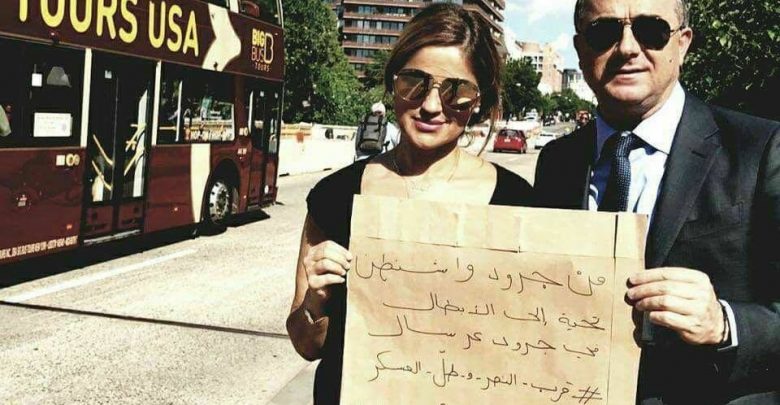 TOURS USA
BIG
BUS
TOURS
من جرود واشنطن
تحية إلى الابطال
في جرود عرسال
# قرب - النصر - و - طلّ - العسكر